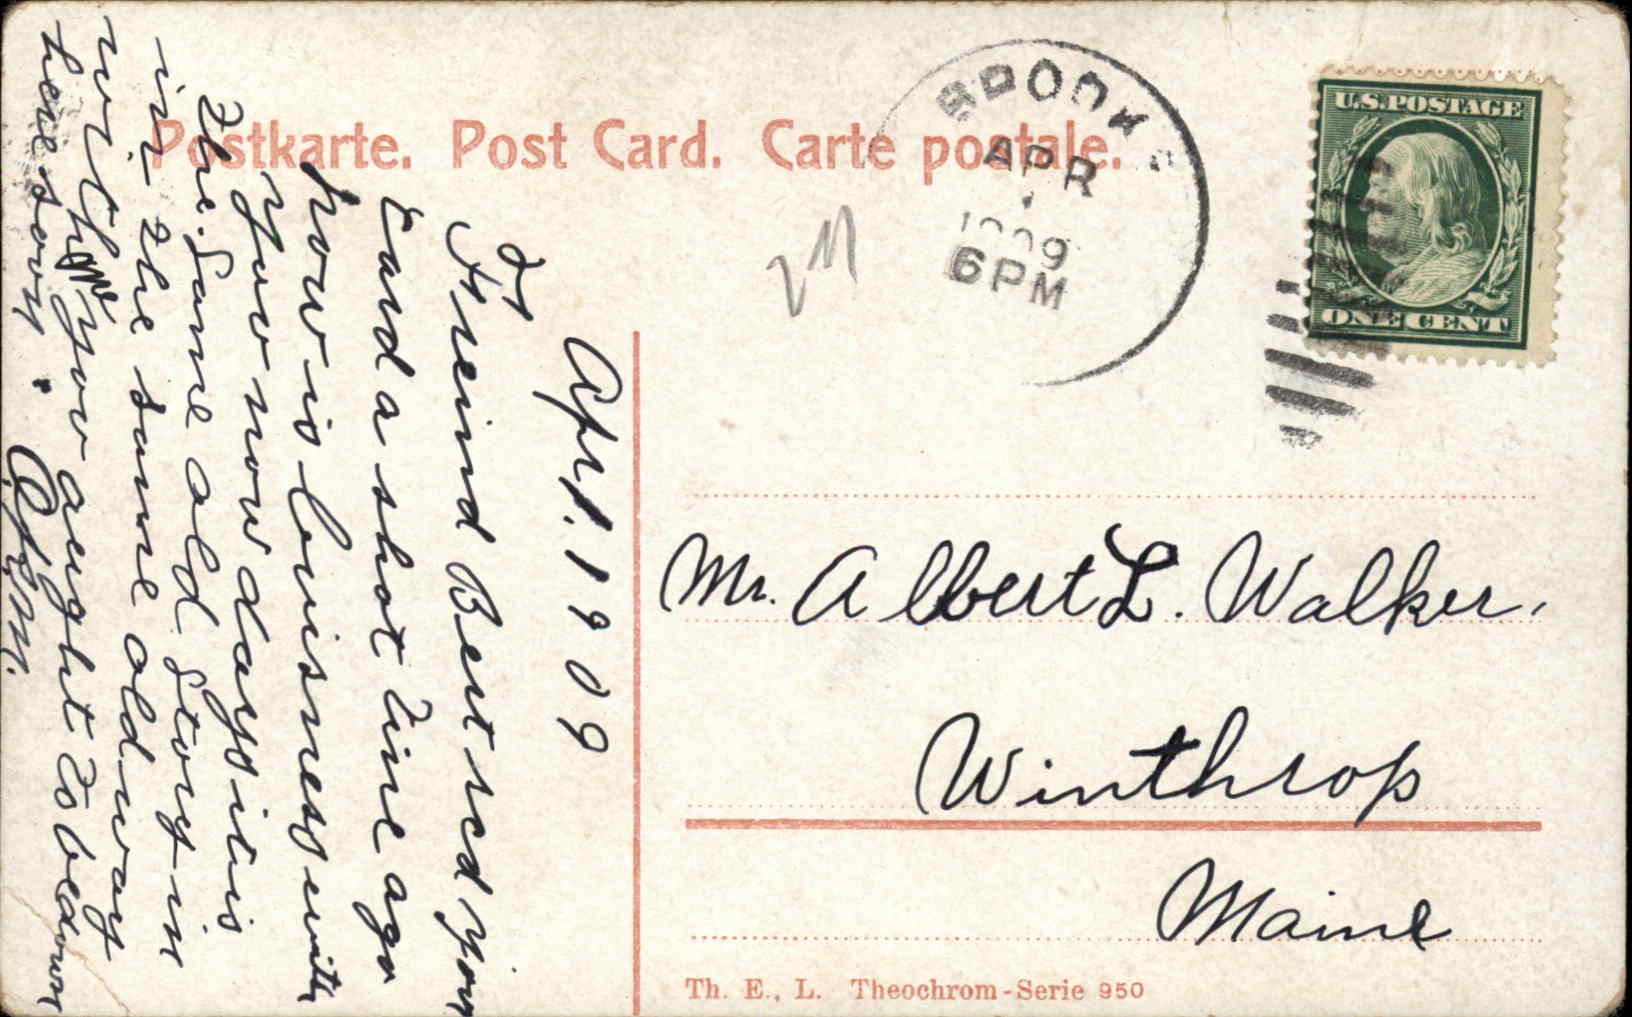 Postkarte. Post Card. Carte postale.
BROOKS
APR
1
1909
6PM
U.S.POSTAGE
ONE CENT
Apr. 1 1909
Freind Bert rcd your
Card a shot time ago
how is buisness with
you now days it is
the Same old Story in
in the same old way
with you aught to be down
here soon.
Mr. Albert L. Walker,
Winthrop
Maine
Th. E., L. Theochrom-Serie 950